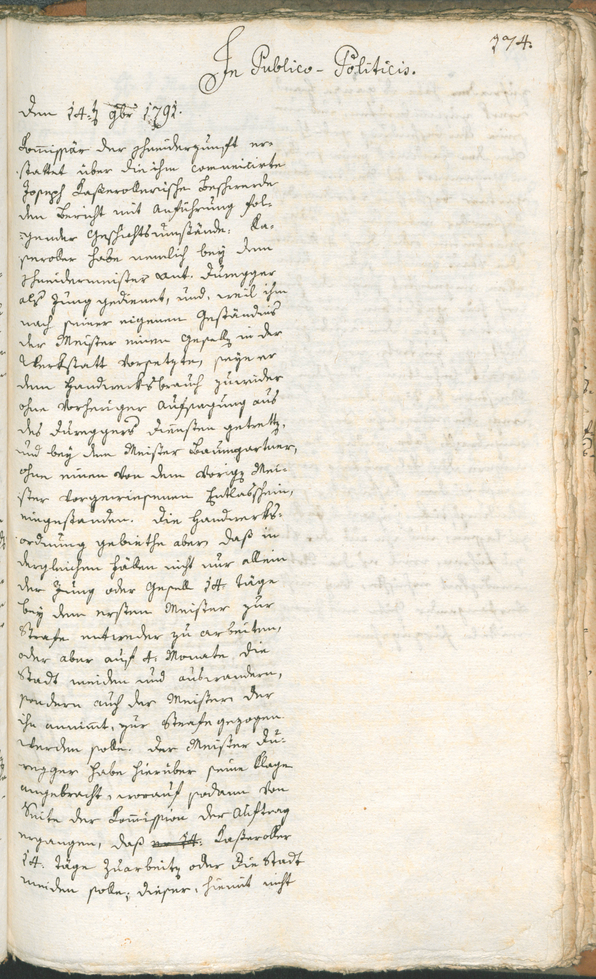 174.
In Publico-Politicis.
Den 14:t 9br 1791.
Kommissär der Schneiderzunft er-
stattet über die ihm committirte
Joseph Kaßerollerische Beschwerde
den Bericht mit Anführung fol-
gender Geschichtsumstände: Ka-
sseroller habe nemlich bey dem
Schneidermeister Ant. Duregger
als Jung gedienet, und, weil ihm
nach seiner eigenen Geständnis
der Meister einen Gesell in der
Werkstatt vorsetzte, seye er
dem Handwerksbrauch zuwider
ohne vorheriger Aufsagung aus
des Dureggers Diensten getrett,
und bey dem Meister Baumgartner,
ohne einen von dem vorigen Mei-
ster vorgewiesenen Entlasschein,
eingestanden. Die Handwerks-
ordnung gebiethe aber, daß in
dergleichen Fällen nicht nur allein
der Jung oder Gesell 14 Täge
bey dem ersten Meister zur
Strafe entweder zu arbeiten,
oder aber auf 4 Monate die
Stadt meiden und auswandern,
sondern auch der Meister der
ihn annimt, zur Strafe gezogen
werden solle. Der Meister Du-
regger habe hierüber seine Klage
angebracht, worauf sodann von
Seite der Komission der Auftrag
ergangen, daß Kaßeroller
14 Täge zuarbeiten oder die Stadt
meiden solle; dieser, hiemit nicht